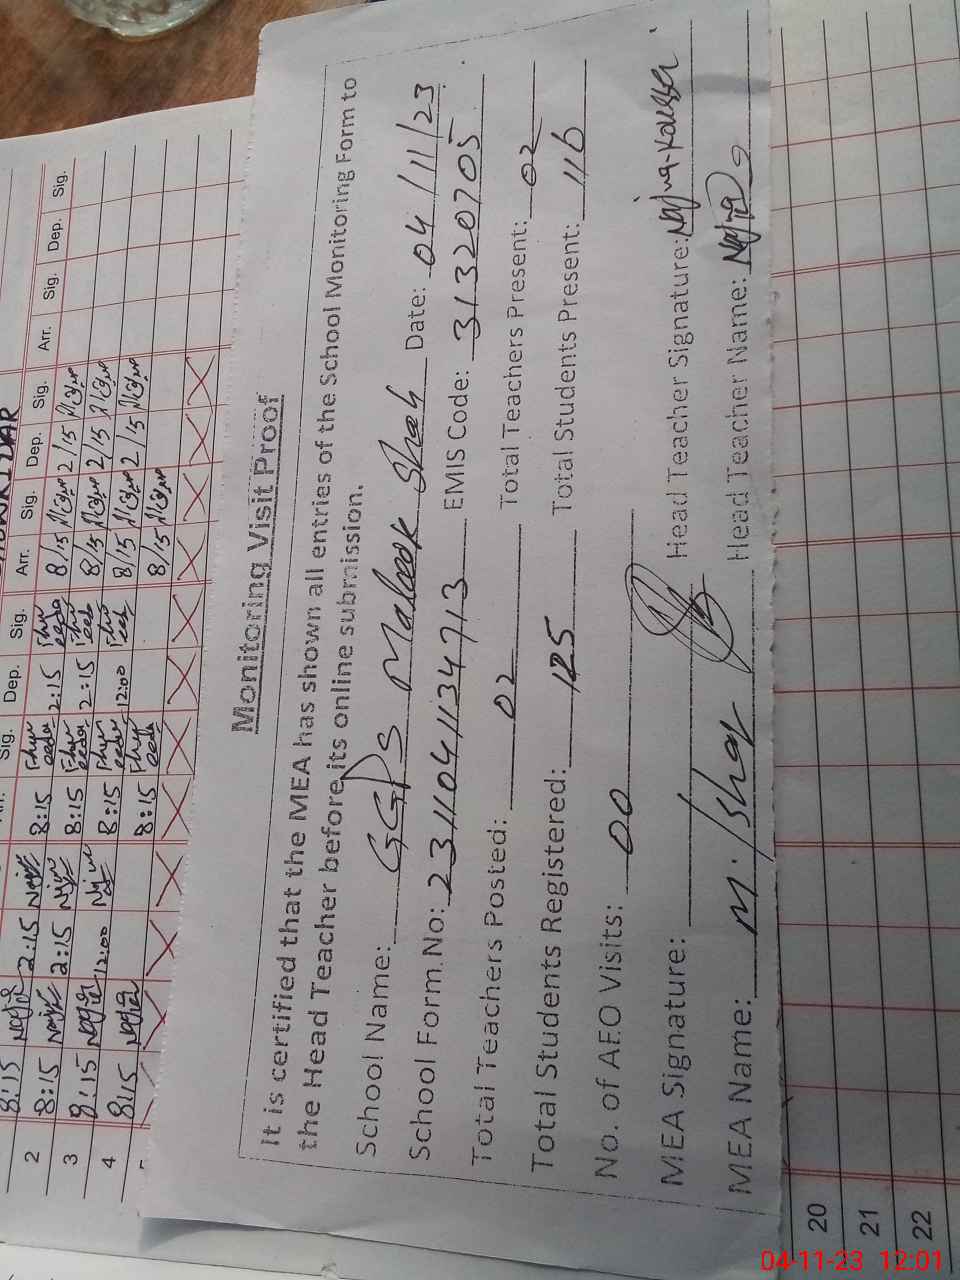 Monitoring Visit Proof
It is certified that the MEA has shown all entries of the School Monitoring Form to
the Head Teacher before its online submission.
School Name: GGPS Maleek Shah Date: 04/11/23
School Form No: 2311041134713 EMIS Code: 31320705
Total Teachers Posted: 02 Total Teachers Present: 02
Total Students Registered: 125 Total Students Present: 116
No. of AEO Visits: 00
MEA Signature: Head Teacher Signature: Najma Kousser
MEA Name: M. Ishaq Head Teacher Name: Najma
Sig. Dep. Sig. Arr. Sig. Dep. Sig. Arr. Sig. Dep. Sig.
8:15 2:15 8:15 2:15 8/15 2/15
2 8:15 2:15 8:15 2:15 8/15 2/15
3 8:15 12:00 8:15 12:00 8/15 2/15
4 8:15 8:15 8/15
20
21
22
04-11-23 12:01